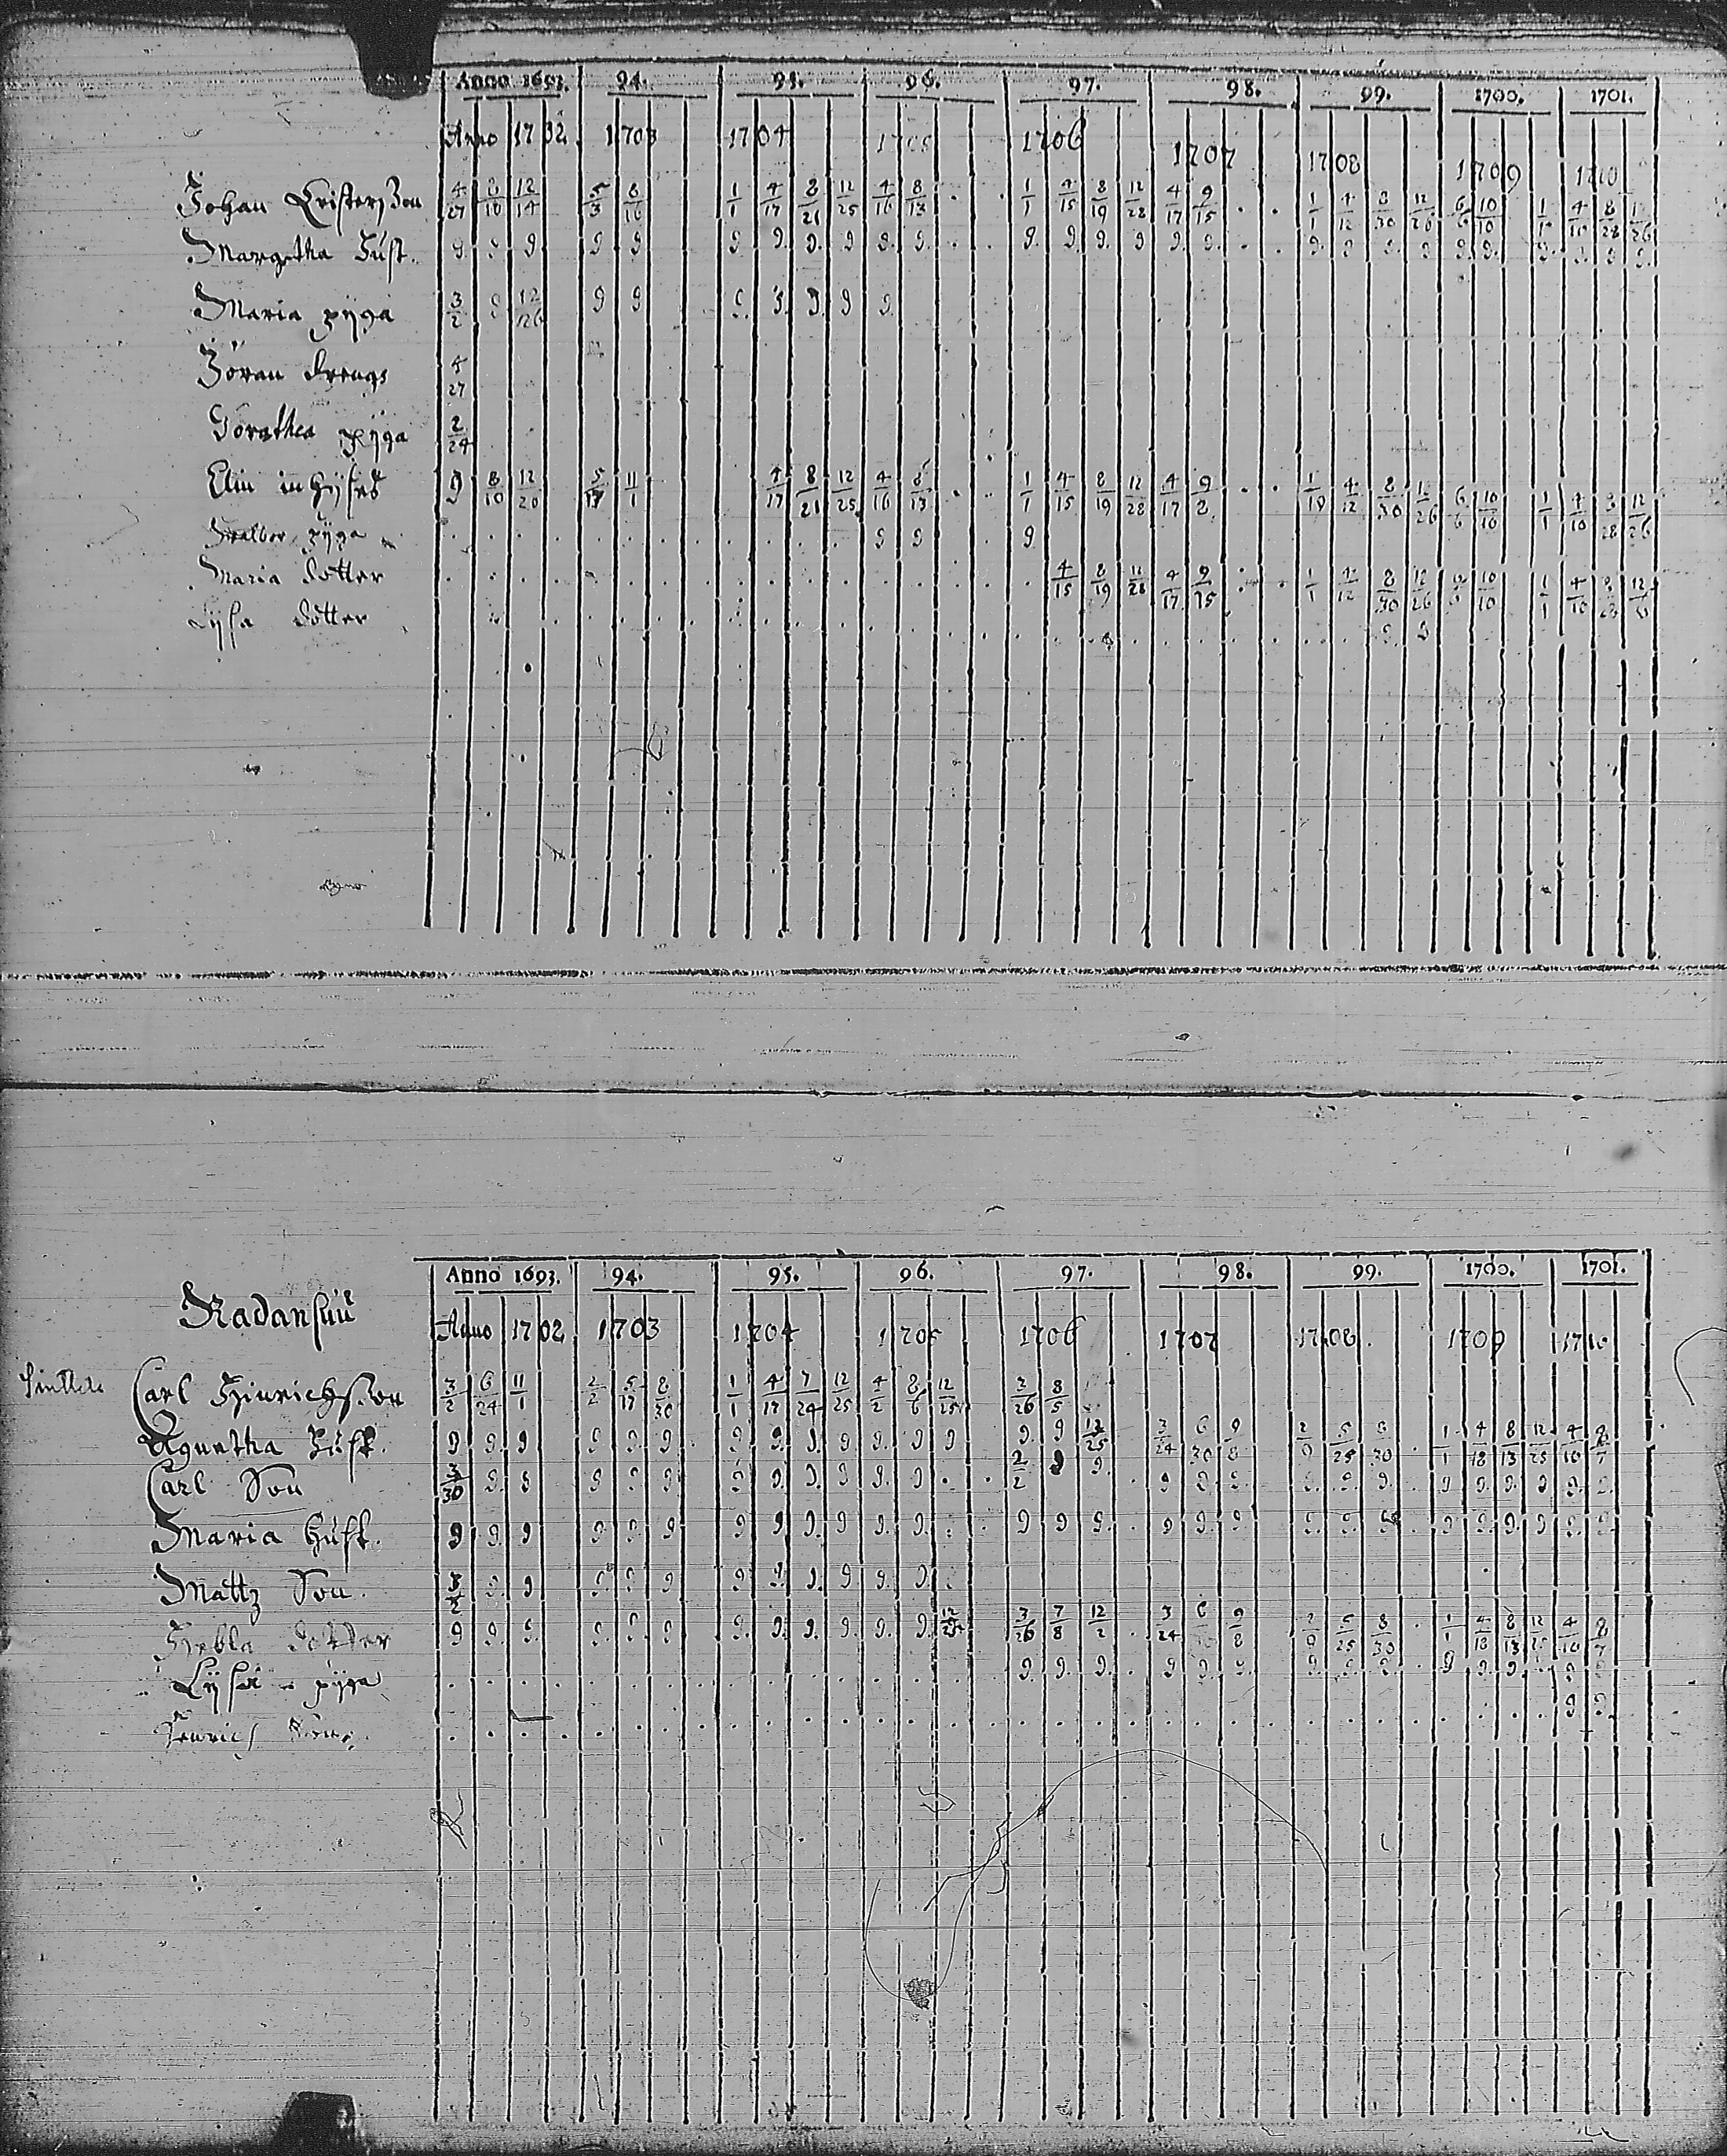 Anno 1693. 94. 95. 96. 97. 98. 99. 1700. 1701.
Anno 1702 1703 1704 1705 1706 1707 1708 1709 1710
Johan Christerßon 4/27 8/10 12/14 5/3 8/16 1/1 4/17 8/21 12/25 4/16 8/13 . . 1/1 4/15 8/19 12/28 4/17 9/15 . . 1/1 4/12 8/30 12/26 6/6 10/10 1/1 4/10 8/28 12/26
Margetha Hust. 9 9 9 9 9 9 9. 9. 9 9. 9. . . 9. 9. 9. 9 9. 9. . . 9. 9 9. 9 9. 9. 9. 9. 9 9.
Maria pijga 3/2 9 12/26 9 9 9. 9. 9 9 9.
Jöran Drengs 4/27
Dorathea pijga 2/24
Elin inhyses 9 8/10 12/20 5/17 11/1 4/17 8/21 12/25 4/16 8/13 . . 1/1 4/15 8/19 12/28 4/17 9/2 . . 1/19 4/12 8/30 12/26 6/6 10/10 1/1 4/10 8/28 12/26
Walbor pijga 9 9 9
Maria dotter 4/15 8/19 12/28 4/17 9/15 . . 1/1 4/12 8/30 12/26 6/6 10/10 1/1 4/10 8/28 12/6
Lijsa dotter 9 9
Anno 1693. 94. 95. 96. 97. 98. 99. 1700. 1701.
Radansuu
Anno 1702 1703 1704 1705 1706 1707 1708. 1709 1710
Carl Hinrichsson 3/2 6/24 11/1 2/2 5/17 8/30 1/1 4/17 7/24 12/25 4/2 8/6 12/25 3/26 8/5
Agnetha Hust. 9 9. 9 9 9. 9. 9. 9. 9. 9 9. 9 9 9. 9 12/25 3/24 6/30 9/8 2/9 5/25 8/30 . 1/1 4/18 8/13 12/25 4/10 8/7
Carl Son 3/30 9. 9 9 9. 9 9 9. 9. 9 9. 9. . . 2/2 9 9. . 9 9 9. 9. 9. 9. . 9 9. 9. 9 9. 9.
Maria Hust. 9 9. 9 9. 9. 9 9 9 9. 9 9. 9. . . 9 9 9. . 9 9. 9 9. 9. 9 . 9 9. 9. 9 9. 9.
Mattz Son. 3/2 9. 9 9. 9. 9 9. 9. 9. 9 9. 9.
Hebla Dotter 9 9. 9. 9. 9. 9. 9. 9. 9. 9. 9. 9. 12/25 3/26 7/8 12/2 3/24 6 9/8 2/9 5/25 8/30 . 1/1 4/18 8/13 12/25 4/10 8/7
Lijsa pijga 9. 9. 9. . 9 9. 9. 9. 9. 9. . 9 9. 9. 9
Henrich 9 9.